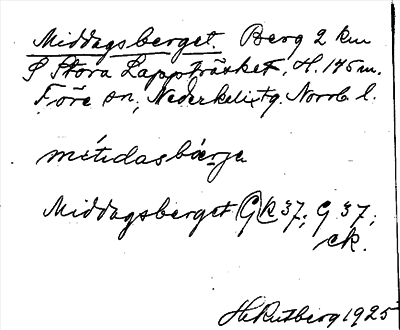 Middagsberget. Berg 2 km
S Stora Lappträsket, H. 145 m.
Töre sn, Nederkalix tg. Norrb l.
mitidasbærje
Middagsberget Gk 37; G 37;
ek.
H. Rutberg 1925